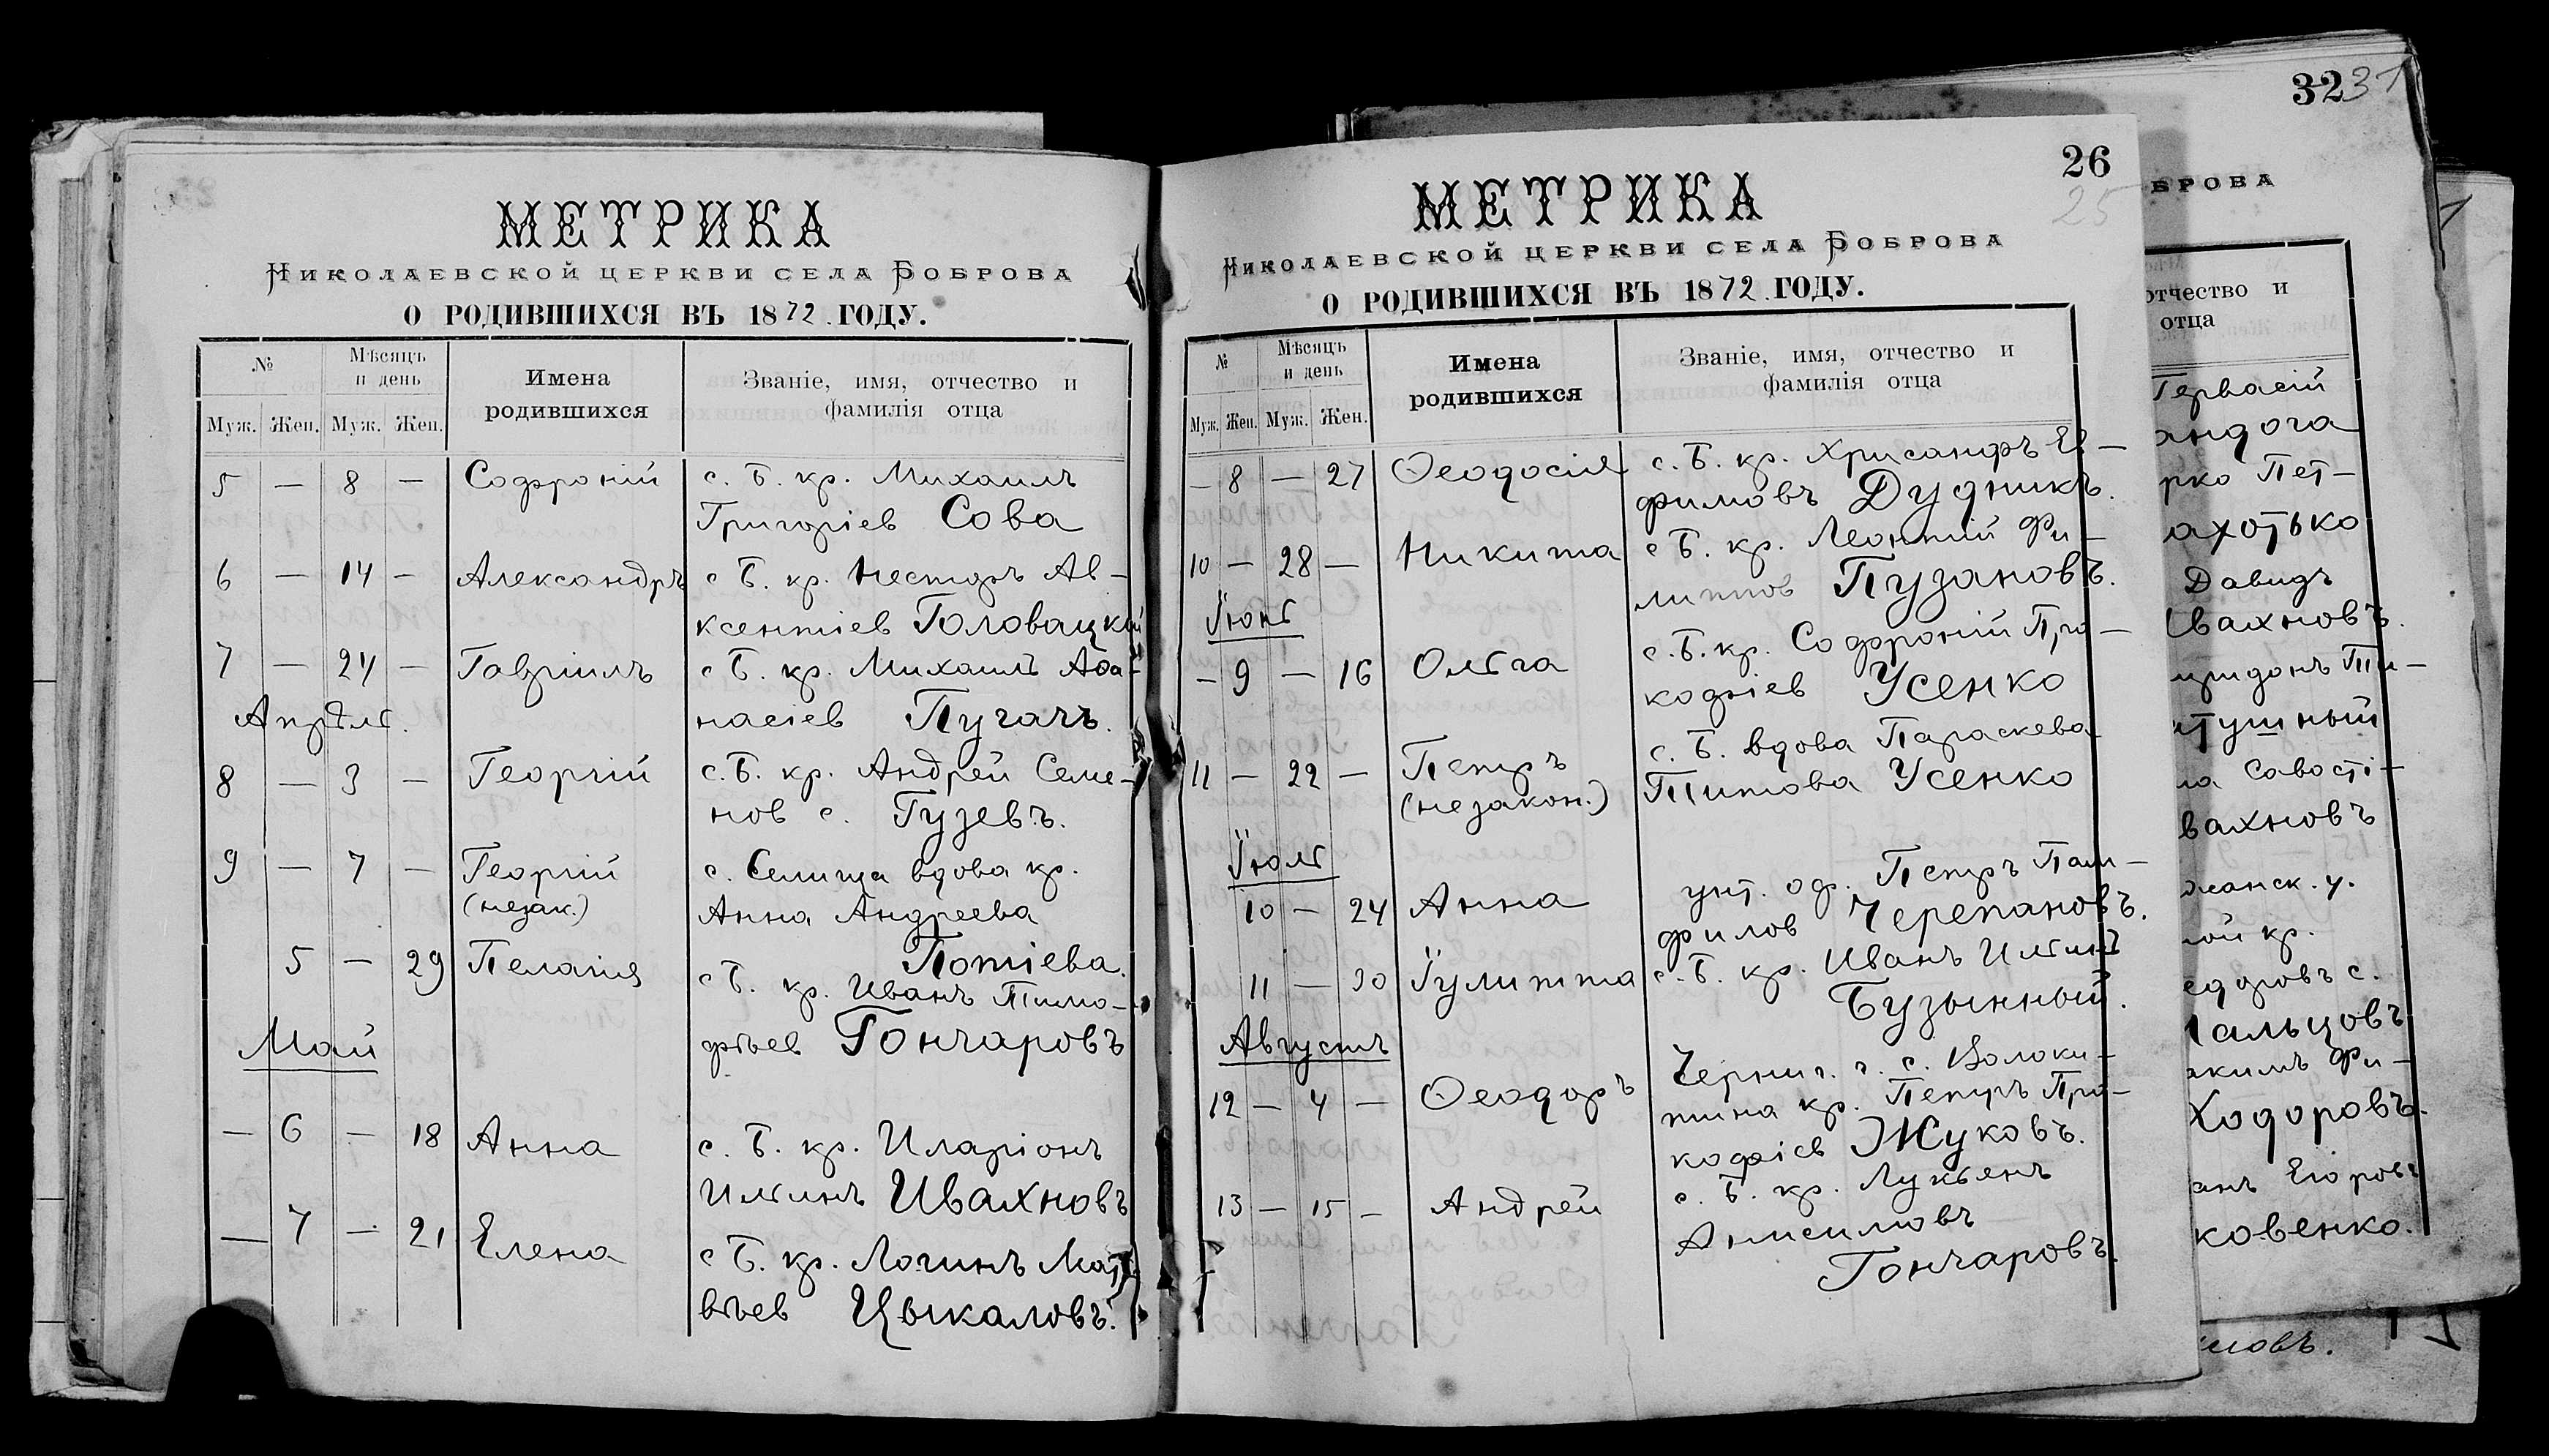 МЕТРИКА
НИКОЛАЕВСКОЙ ЦЕРКВИ СЕЛА БОБРОВА
О РОДИВШИХСЯ ВЪ 1872 ГОДУ.
№ Мѣсяцъ и день Имена родившихся Званіе, имя, отчество и фамилія отца
Муж. Жен. Муж. Жен.
5 — 8 — Софроній с. Б. кр. Михаилъ
Григоріев Сова
6 — 14 — Александръ с Б. кр. Несторъ Ав-
ксентіев Головацкій
7 — 24 — Гавріилъ с Б. кр. Михаилъ Аѳа-
Апрѣль. насіев Пугачъ.
8 — 3 — Георгій с. Б. кр. Андрей Семе-
нов с. Гузевъ.
9 — 7 — Георгій с. Селища вдова кр.
(незак.) Анна Андреева
Потіева.
5 — 29 Пелагія с Б. кр. Иванъ Тимо-
Май фѣев Гончаровъ
— 6 — 18 Анна с. Б. кр. Иларіонъ
Ильинъ Ивахновъ
— 7 — 21 Елена с Б. кр. Логинъ Мат-
вѣев Цыкаловъ.
26
25
МЕТРИКА
НИКОЛАЕВСКОЙ ЦЕРКВИ СЕЛА БОБРОВА
О РОДИВШИХСЯ ВЪ 1872 ГОДУ.
№ Мѣсяцъ и день Имена родившихся Званіе, имя, отчество и фамилія отца
Муж. Жен. Муж. Жен.
— 8 — 27 Ѳеодосія с. Б. кр. Хрисанфъ Ев-
фимовъ Дудникъ.
10 — 28 — Никита с Б. кр. Леонтій Фи-
липпов Пузановъ.
Іюнь
— 9 — 16 Ольга с. Б. кр. Софроній Про-
кофіев Усенко
11 — 22 — Петръ с. Б. вдова Параскева
(незакон.) Титова Усенко
Іюль
10 — 24 Анна унт. оф. Петръ Пам-
филов Черепановъ.
11 — 30 Іулитта с. Б. кр. Иванъ Ильинъ
Бузынный.
Августъ
12 — 4 — Ѳеодоръ Черниг. г. с. Волоки-
тина кр. Петръ Про-
кофіев Жуковъ.
13 — 15 — Андрей с. Б. кр. Лукьянъ
Анисимовъ
Гончаровъ.
32
31
БРОВА
отчество и
отца
Гервасій
андога
рко Пет-
ахотько
Давидъ
вахновъ.
иридонъ Ти-
тушный
ла Савості-
вахновъ
жанск. у.
ой кр.
едоровъ с.
альцовъ
акимъ Фи-
Ходоровъ.
анъ Егоровъ
ковенко.
мовъ.